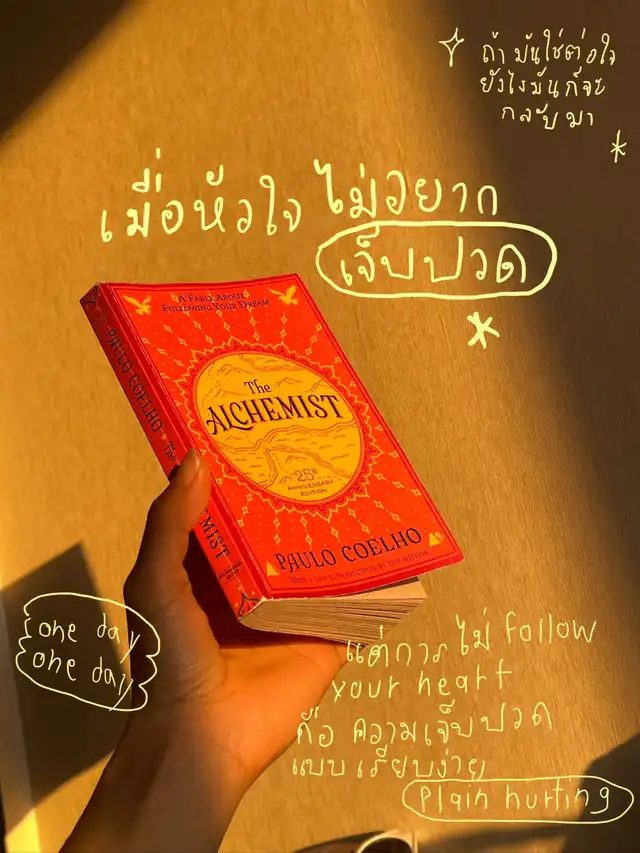 ถ้ามันใช่ต่อใจ
ยังไงมันก็จะ
กลับมา
เมื่อหัวใจ ไม่อยาก
เจ็บปวด
A FABLE ABOUT
FOLLOWING YOUR DREAM
The
ALCHEMIST
25th
ANNIVERSARY
EDITION
PAULO COELHO
WITH A NEW INTRODUCTION BY THE AUTHOR
PAULO COELHO The
MIST
one day
one day
แต่การ ไม่ follow
your heart
คือ ความเจ็บปวด
แบบ เรียบง่าย
plain hurting